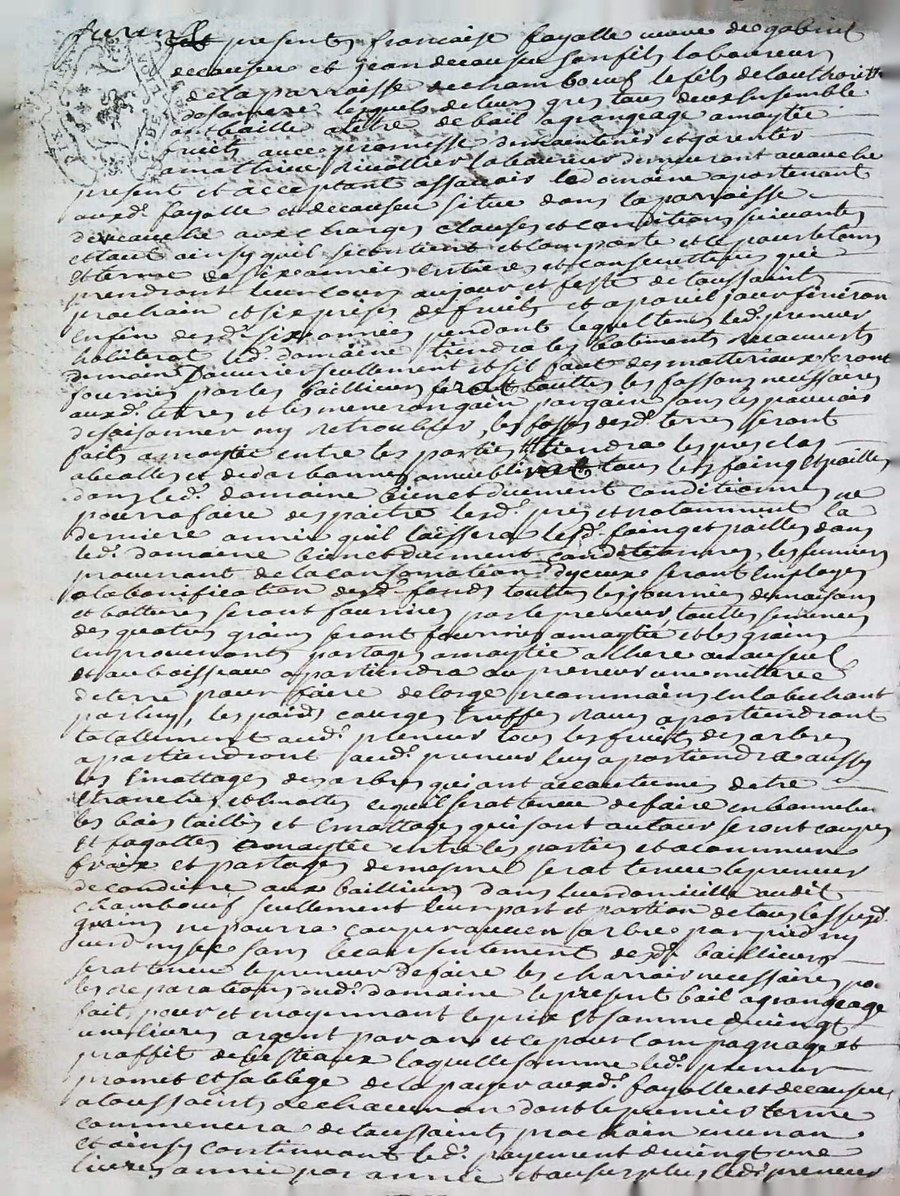 furent present francoise fayolle veuve de gabriel
decauseu et jean decauseu son fils laboureur
de la parroisse de chambouf le fils de lauthorité
de sa mere lesquels de leurs gres tous deux ensemble
ont baille a tiltre de bail a grangeage a moytie
fruits avec promesse de maintenir et garentir
a mathieu laboureur demeurant a
present et acceptant assavoir le domaine apartenant
auxd. fayolle et decauseu situe dans la parroisse
de aux charges clauses et conditions suivantes
et tout ainsy quil se contient et comporte et ce pour le tems
et terme de six annees entieres et consecutives qui
prendront leur cours au jour et feste de toussaint
prochain et six prises de fruits et a pareil jour finiron
enfin desd. six annees pendant lequel tems led. preneur
habiterat led. domaine tiendra les batiments recouverts
de main douvrier seullement et sil faut des matteriaux seront
fournis par les bailleurs ferat touttes les fassons necessaires
auxd. terres et les menerons gain par gain sans les pouvoir
desaisonner ny retroubler, les fosses desd. terres seront
faits a moytie entre les parties tiendra les pres clos
et tous les foing et pailles
dans led. domaine bien et duement conditionnes ne
pourra faire depaitre lesd. pres et notamment la
derniere annee quil laissera lesd. foing et pailles dans
led. domaine bien et duement conditionnes, les fumiers
provenant de la consomation dyceux seront employes
a la bonification desd. fonds touttes les journees de moisons
et batteurs seront fournies par le preneur, touttes semences
des quatres grains seront fournies a moytie et les grains
en provenants partages a moytie
et au boisseau apartiendra au preneur une
de terre pour faire de lorge neammoins en la bechant
par luy, les pois courges truffes raves apartiendront
totallement aud. preneur tous les fruits des arbres
apartiendront aud. preneur luy apartiendra aussy
les emottages des arbres qui ont accoutumes detre
ebranches et emottes ce quil serat tenu de faire en bonne
les bois taillis et emottages qui sont autour seront coupes
et fagottes a moytie entre les parties et a commun
fraix et partages de mesme serat tenu le preneur
de conduire aux bailleurs dans leur domicille audit
chambouf seullement leur part et portion de tous les susd.
grains ne pourra couper aucun arbre par pied ny
verd ny sec sans le consentement desd. bailleurs
serat tenu le preneur de faire les charrois necessaires po
les reparations dud. domaine le present bail a grangeage
fait pour et moyennant le prix et somme de vingt
une livres argent par an et ce pour compagnage et
proffit de bestiaux laquelle somme led. preneur
promet et soblige de la payer auxd. fayolle et decauseu
a toussaint de chacun an dont le premier terme
commencera de toussaint prochain en un an
et ainsy continuant led. payement de vingt une
livres annee par annee et au surplus led. preneur